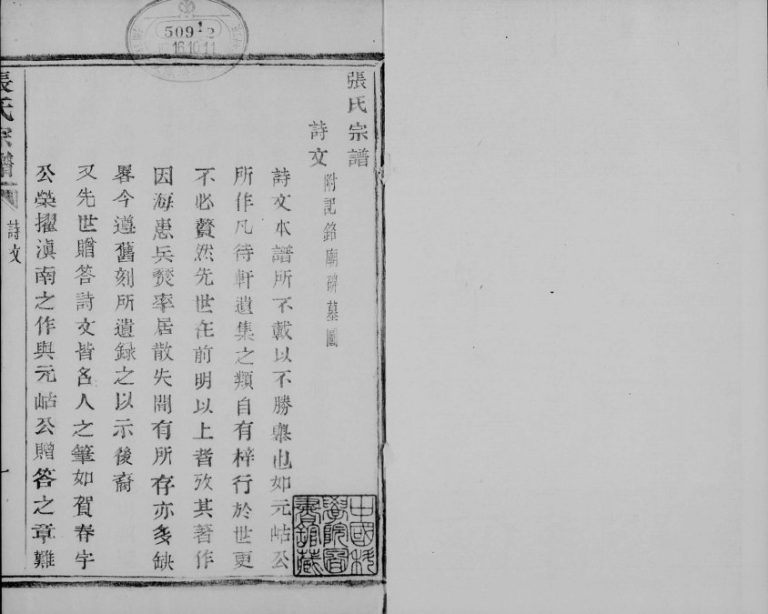 張氏宗譜
詩文 附記銘廟碑墓圖
詩文本譜所不載以不勝舉也如元岵公
所作凡待軒遺集之類自有梓行於世更
不必贅然先世在前明以上者攷其著作
因海患兵燹率居散失間有所存亦多缺
畧今遵舊刻所遺錄之以示後裔
又先世贈答詩文皆名人之筆如賀春宇
公榮擢滇南之作與元岵公贈答之章難
張氏宗譜
詩文
一
509 2
16.10.11
中國科
學院圖
書館藏